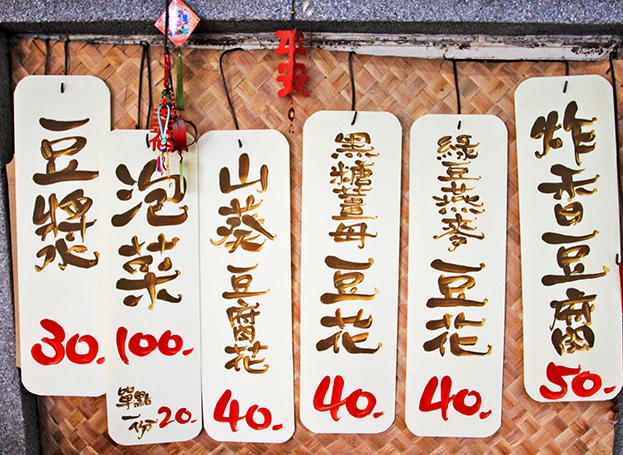 平安
福
豆漿
30.
泡菜
100.
單點
一份20.
山葵豆腐花
40.
黑糖薑母豆花
40.
綠豆燕麥豆花
40.
炸香豆腐
50.